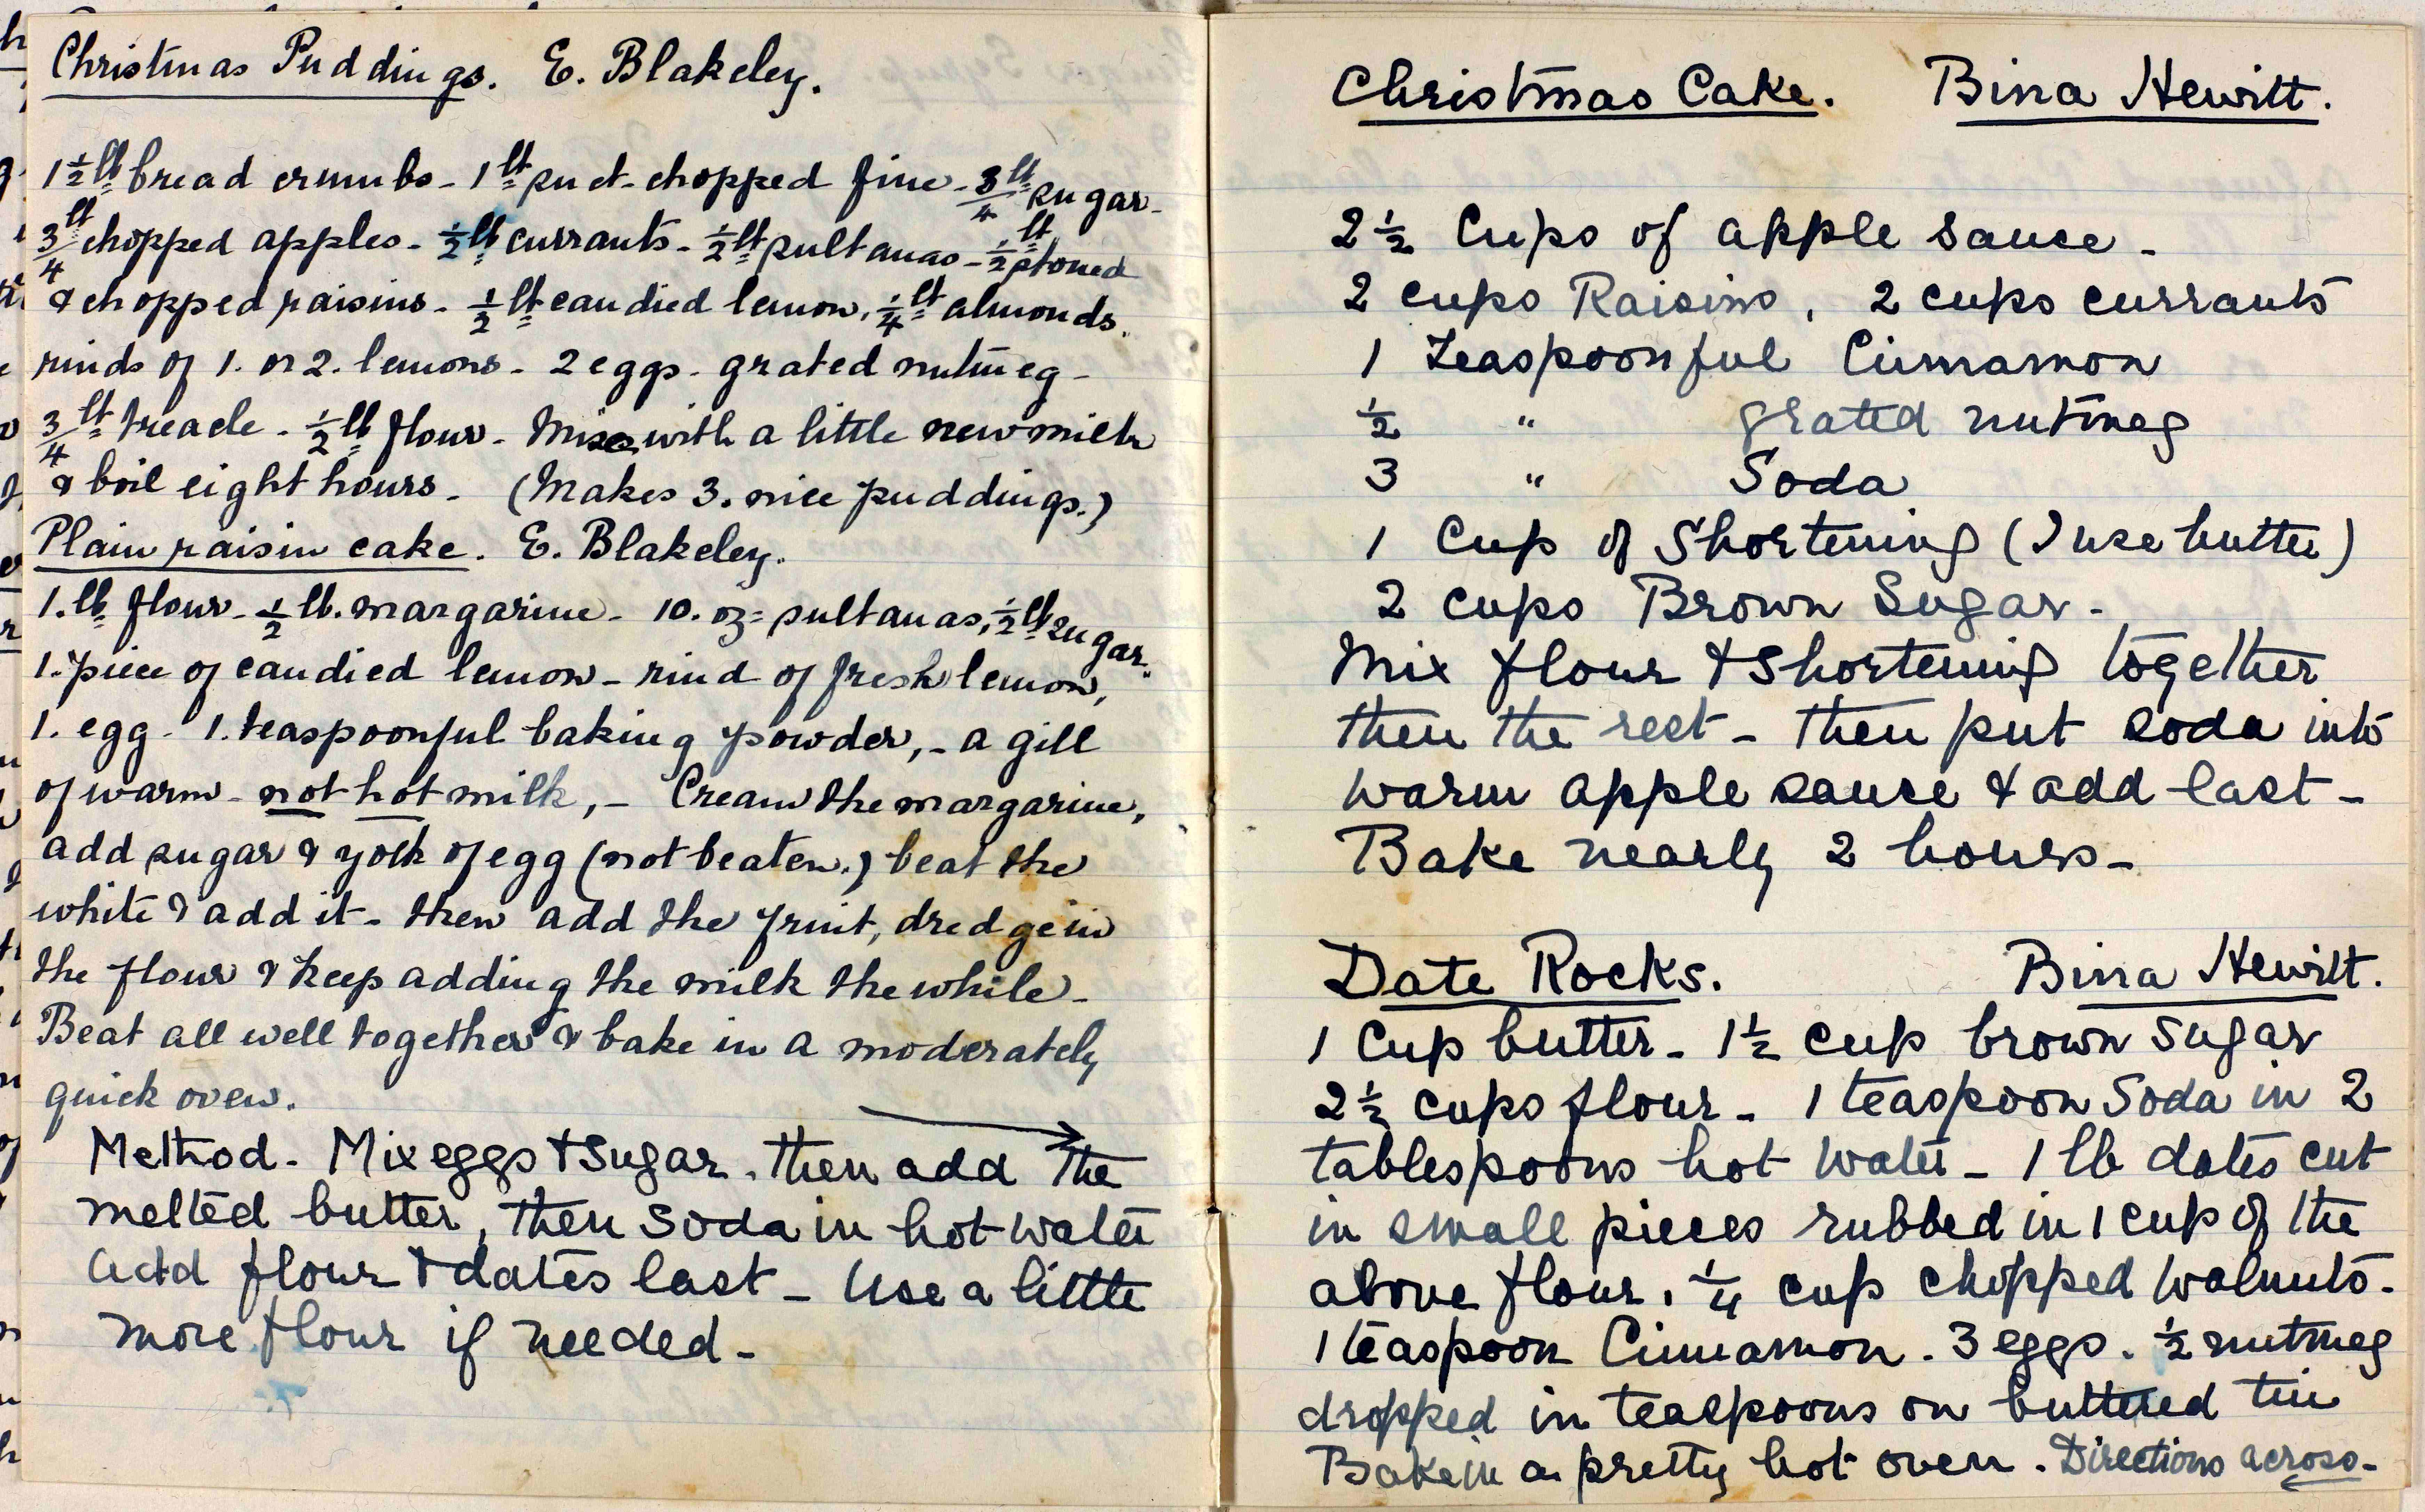 Christmas Puddings. E. Blakeley.
1 1/2 lb bread crumbs - 1 lb suet - chopped fine - 3/4 lb sugar -
3/4 lb chopped apples - 1/2 lb currants - 1/2 lb sultanas - 1/2 lb stoned
& chopped raisins - 1/2 lb candied lemon, 1/4 lb almonds.
rinds of 1. or 2. lemons - 2 eggs - grated nutmeg -
3/4 lb treacle - 1/2 lb flour - Mix with a little new milk
& boil eight hours - (Makes 3. nice puddings.)
Plain raisin cake. E. Blakeley.
1. lb flour - 1/2 lb. margarine - 10. oz = sultanas, 1/2 lb sugar.
1. piece of candied lemon - rind of fresh lemon,
1. egg - 1. teaspoonful baking powder, - a gill
of warm - not hot milk, - Cream the margarine,
add sugar & yolk of egg (not beaten.) beat the
white & add it - then add the fruit, dredge in
the flour & keep adding the milk the while -
Beat all well together & bake in a moderately
quick oven.
Method - Mix eggs & Sugar. then add the
melted butter, then Soda in hot water
add flour & dates last - Use a little
more flour if needed -
Christmas Cake. Bina Hewitt.
2 1/2 Cups of apple sauce -
2 cups Raisins, 2 cups currants
1 Teaspoonful Cinnamon
1/2 " grated nutmeg
3 " Soda
1 Cup of Shortening (I use butter)
2 cups Brown Sugar -
Mix flour & Shortening together
then the rest - then put soda into
warm apple sauce & add last -
Bake nearly 2 hours -
Date Rocks. Bina Hewitt.
1 Cup butter - 1 1/2 cup brown sugar
2 1/2 cups flour - 1 teaspoon Soda in 2
tablespoons hot water - 1 lb dates cut
in small pieces rubbed in 1 cup of the
above flour. 1/4 cup chopped walnuts -
1 teaspoon Cinnamon. 3 eggs. 1/2 nutmeg
dropped in teaspoons on buttered tin
Bake in a pretty hot oven. Directions across -